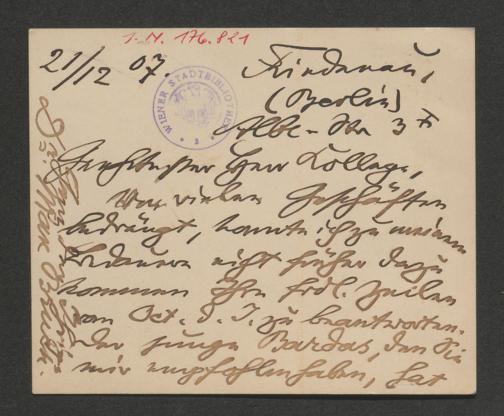 I.N. 176.821
21/12 07.
Friedenau,
(Berlin)
WIENER STADTBIBLIOTHEK
Albe-Str 3 II
Geehrtester Herr College,
Von vielen Geschäften
bedrängt, konnte ich zu meinem
Bedauern nicht früher dazu
kommen Ihre frdl. Zeilen
vom Oct. d. J. zu beantworten.
Der junge Bardas, den Sie
mir empfohlen haben, hat
Max Bruch.